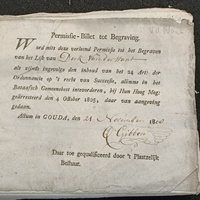 Permissie-Billet tot Begraving.
Word mits deze verleend Permissie tot het Begraven
van het Lyk van Dirk
als zijnde ingevolge den inhoud van het 24 Artc der
Ordonnantie op 't recht van Successie, alomme in het
Bataafsch Gemeenebest intevorderen, bij Hun Hoog Mog:
gearresteerd den 4 October 1805, daar van aangeving
gedaan.
Actum in GOUDA, den 24 November
Daar toe gequalificeerd door 't Plaatzelijk
Bestuur.